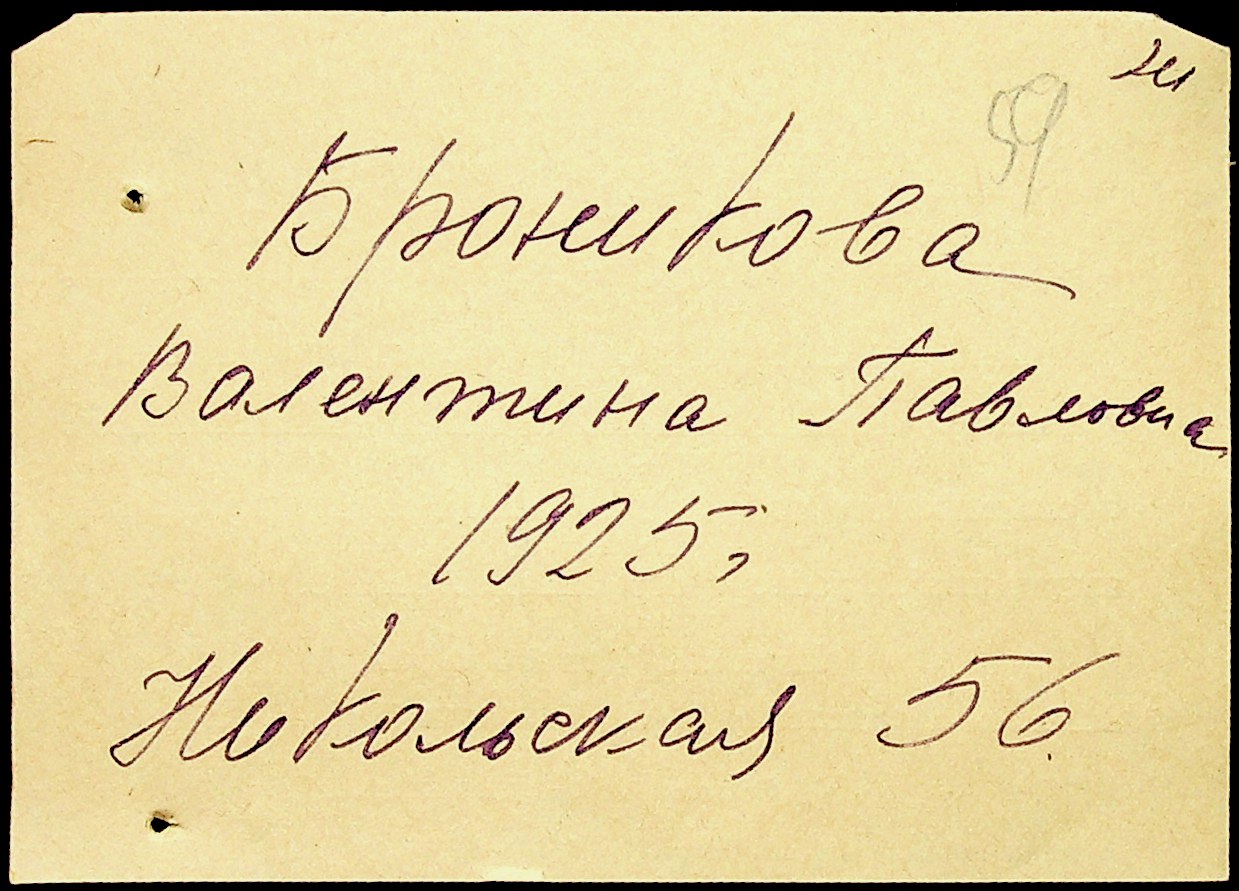 59
Броникова
Валентина Павловна
1925г
Никольская 56.